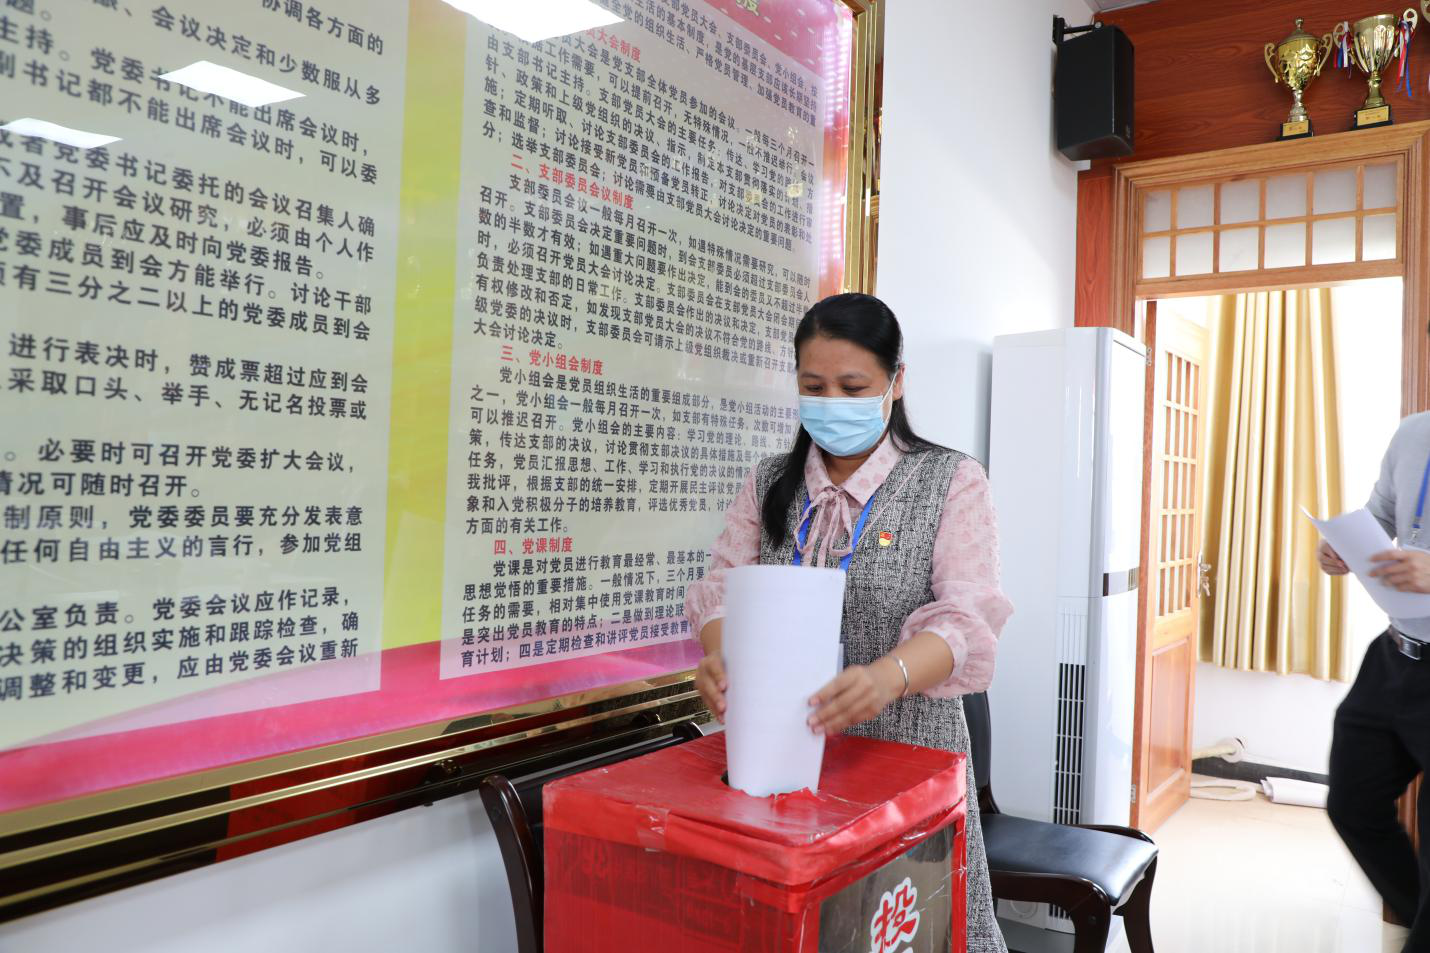 协调各方面的
、会议决定和少数服从多
主持。党委书记不能出席会议时，
副书记都不能出席会议时，可以委
或者党委书记委托的会议召集人确
不及召开会议研究，必须由个人作
置，事后应及时向党委报告。
党委成员到会方能举行。讨论干部
须有三分之二以上的党委成员到会
进行表决时，赞成票超过应到会
采取口头、举手、无记名投票或
。必要时可召开党委扩大会议，
情况可随时召开。
制原则，党委委员要充分发表意
任何自由主义的言行，参加党组
公室负责。党委会议应作记录，
决策的组织实施和跟踪检查，确
调整和变更，应由党委会议重新
员大会制度
大会是党支部全体党员参加的会议。一般每三个月召开一
由支部书记主持。支部党员大会的主要任务：传达、学习党的路线、方
针、政策和上级党组织的决议、指示，制定本支部贯彻落实的计划、措
施；定期听取、讨论支部委员会的工作报告，对支部委员会的工作进行审
查和监督；讨论接受新党员和预备党员转正，讨论决定对党员的表彰和处
分；选举支部委员会；讨论需要由支部党员大会讨论决定的重要问题。
二、支部委员会议制度
支部委员会议一般每月召开一次，如遇特殊情况需要研究，可以随时
召开。支部委员会决定重要问题时，到会支部委员必须超过支部委员会人
数的半数才有效；如遇重大问题要作出决定，能到会的委员又不超过半数
时，必须召开党员大会讨论决定。支部委员会在支部党员大会闭会期
负责处理支部的日常工作。支部委员会作出的决议和决定，支部党员
有权修改和否定，如发现支部党员大会的决议不符合党的路线、方针
级党委的决议时，支部委员会可请示上级党组织裁决或重新召开支
大会讨论决定。
三、党小组会制度
党小组会是党员组织生活的重要组成部分，是党小组活动的主要形
之一，党小组会一般每月召开一次，如支部有特殊任务，次数可增加，
可以推迟召开。党小组会的主要内容：学习党的理论、路线、方针
策，传达支部的决议，讨论贯彻支部决议的具体措施及每个
任务，党员汇报思想、工作、学习和执行党的决议的情况
我批评，根据支部的统一安排，定期开展民主评议党
象和入党积极分子的培养教育，评选优秀党员，讨
方面的有关工作。
四、党课制度
党课是对党员进行教育最经常、最基本的一
思想觉悟的重要措施。一般情况下，三个月要
任务的需要，相对集中使用党课教育时间
是突出党员教育的特点；二是做到理论联
育计划；四是定期检查和讲评党员接受教育
投